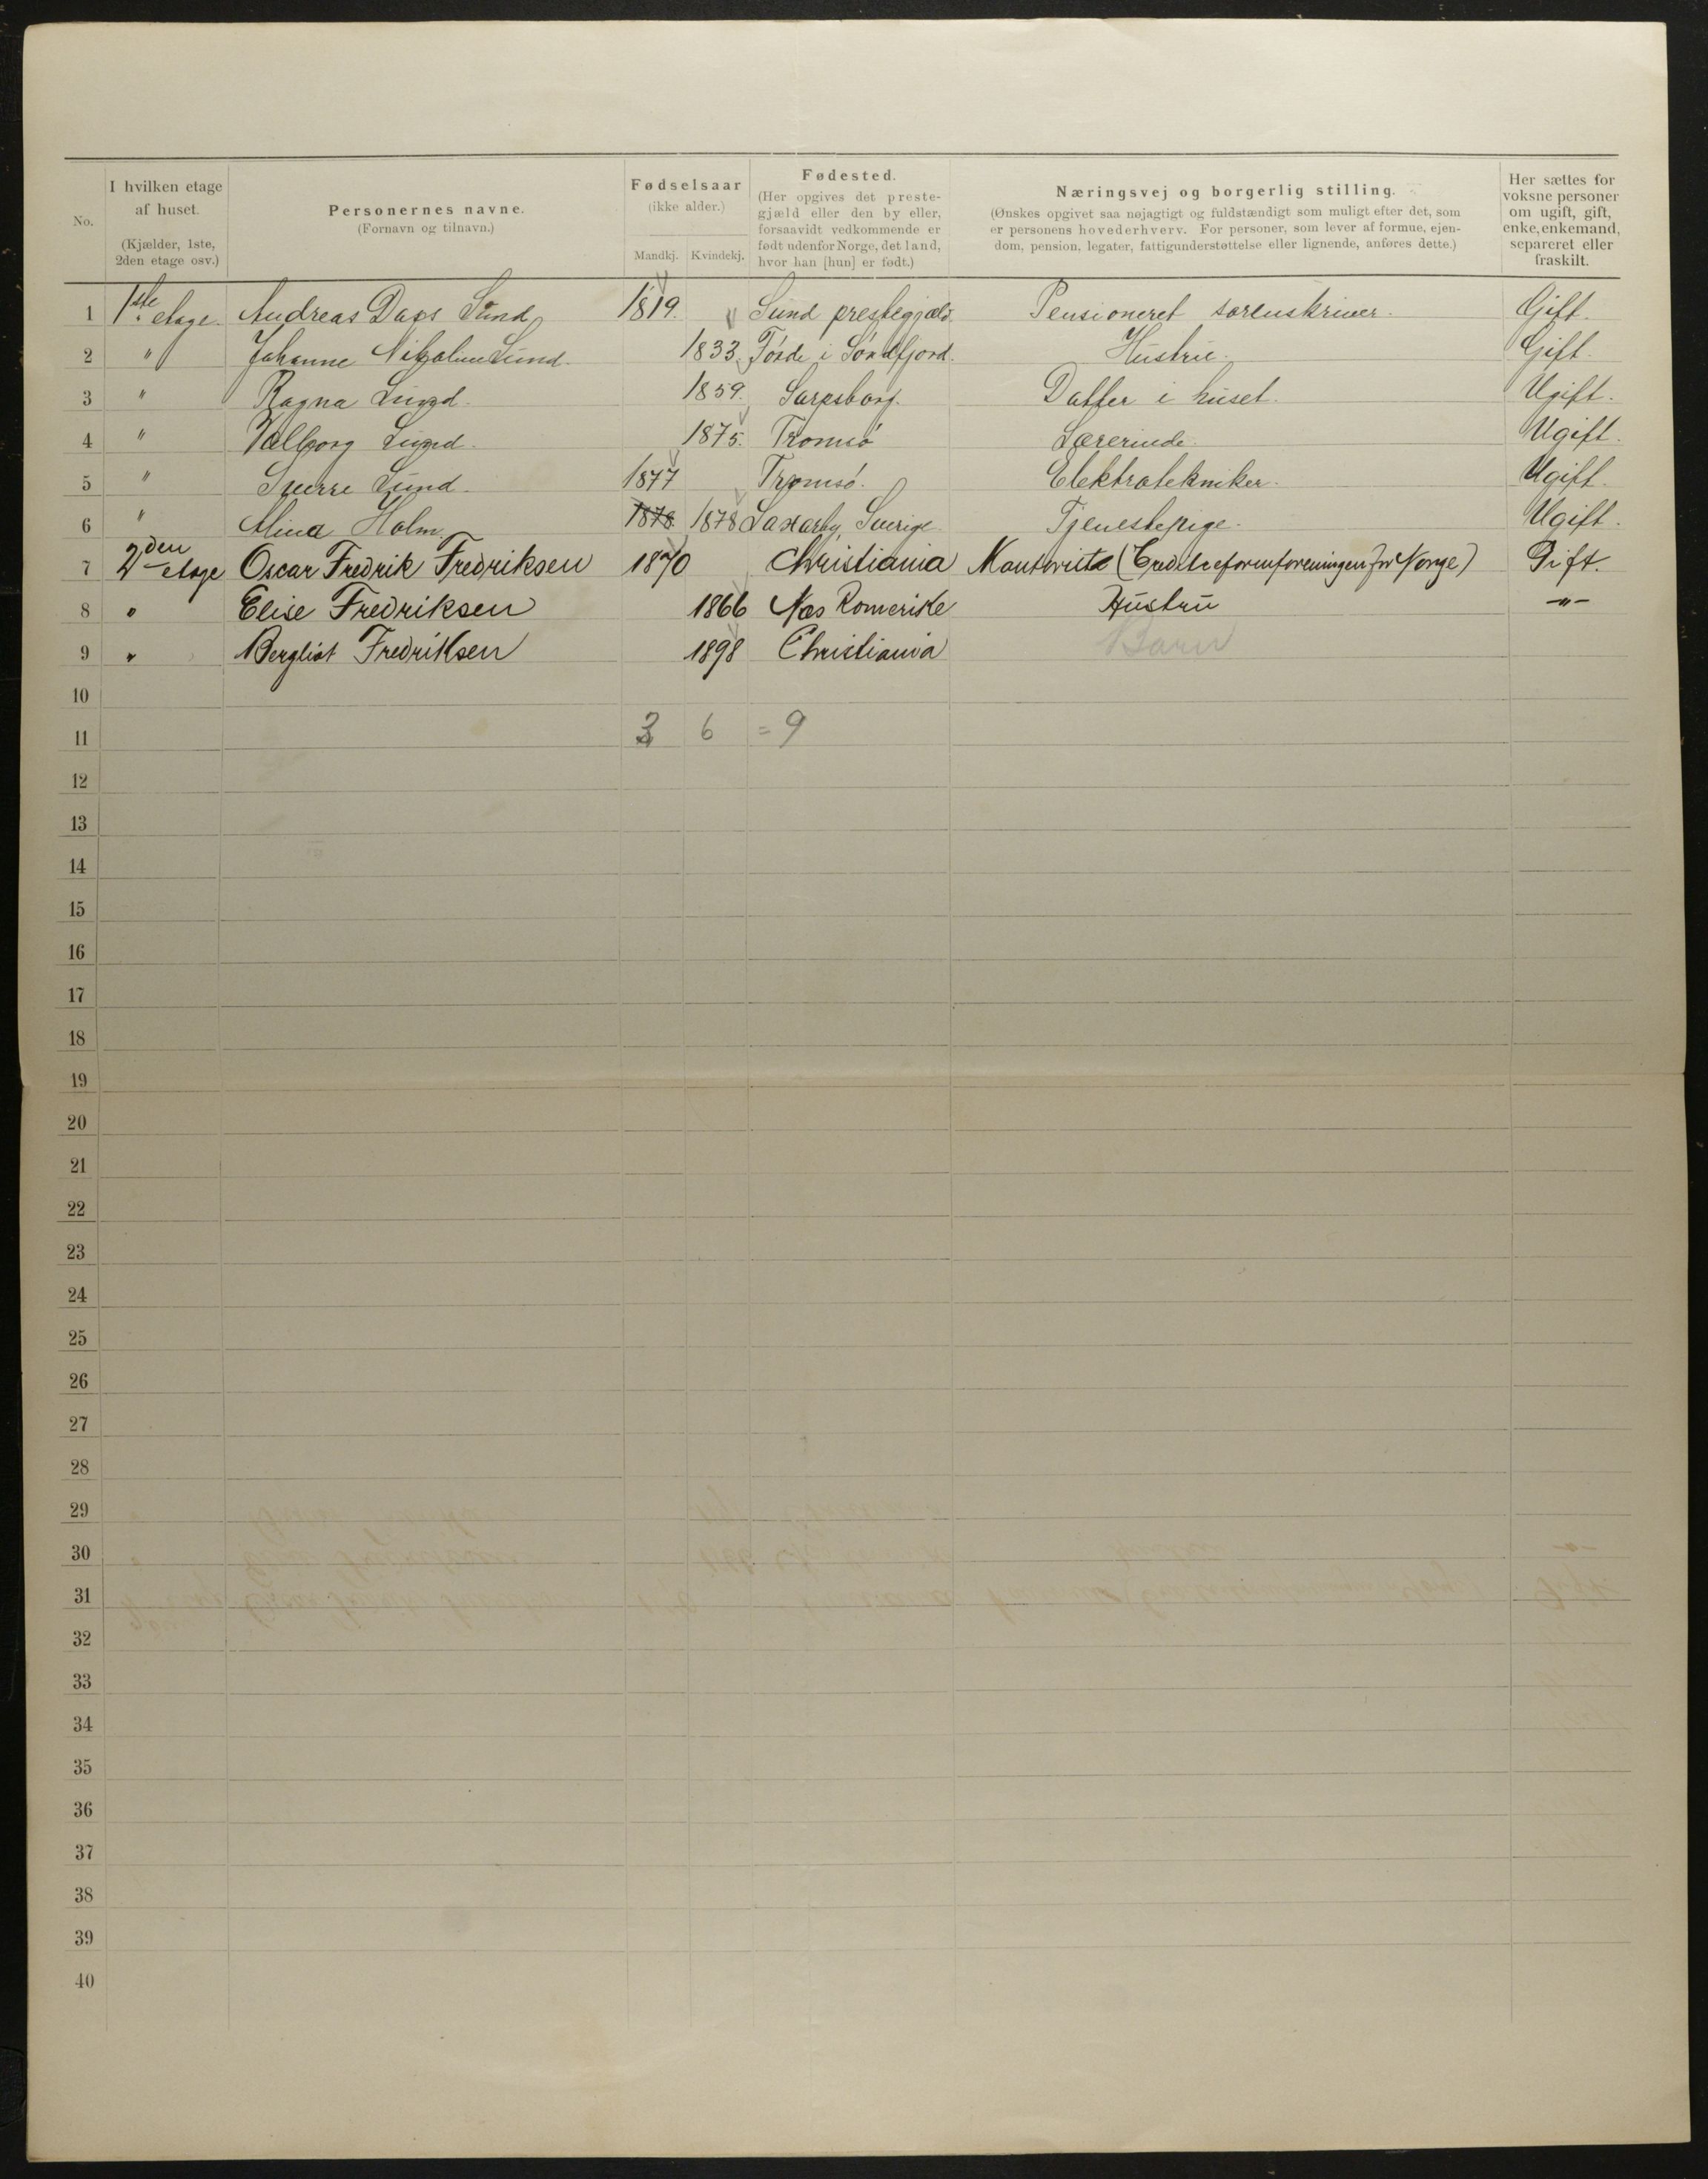 No.
I hvilken etage af huset.
(Kjælder, 1ste, 2den etage osv.)
Personernes navne.
(Fornavn og tilnavn.)
Fødselsaar
(ikke alder.)
Mandkj. Kvindekj.
Fødested.
(Her opgives det preste-
gjæld eller den by eller,
forsaavidt vedkommende er
født udenfor Norge, det land,
hvor han [hun] er født.)
Næringsvej og borgerlig stilling.
(Ønskes opgivet saa nøjagtigt og fuldstændigt som muligt efter det, som
er personens hovederhverv. For personer, som lever af formue, ejen-
dom, pension, legater, fattigunderstøttelse eller lignende, anføres dette.)
Her sættes for
voksne personer
om ugift, gift,
enke, enkemand,
separeret eller
fraskilt.
1 1ste etage. Andreas Daes Lund 1819. Sund prestegjæld Pensioneret sorenskriver. Gift.
2 " Johanne Nikoline Lund. 1833. Förde i Söndfjord. Hustru. Gift.
3 " Ragna Lund. 1859. Sarpsborg. Datter i huset. Ugift.
4 " Valborg Lund. 1875. Tromsö Lærerinde. Ugift.
5 " Sverre Lund. 1877 Tromsö. Elektrotekniker. Ugift.
6 " Alina Holm. 1878 1878 Laxarby, Sverige. Tjenestepige. Ugift.
7 2den etage Oscar Fredrik Fredriksen 1870 Christiania Kontorist (Creditreformforeningen for Norge) Gift.
8 " Elise Fredriksen 1866 Næs Romerike Hustru —"—
9 " Bergliot Fredriksen 1898 Christiania Barn
10
11 3 6 = 9
12
13
14
15
16
17
18
19
20
21
22
23
24
25
26
27
28
29
30
31
32
33
34
35
36
37
38
39
40